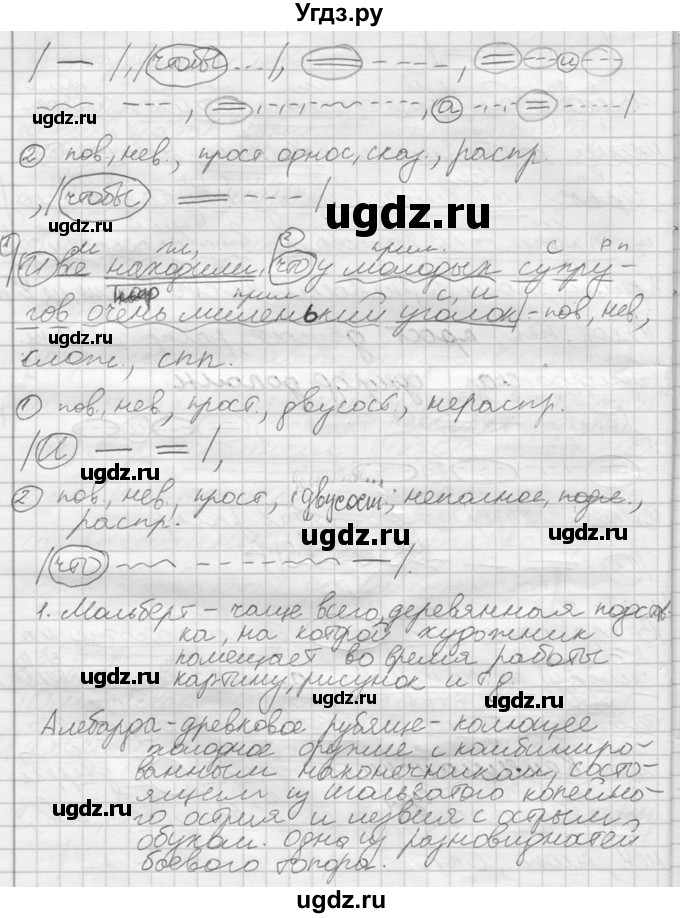 Угдз.ру
| — |, | чтобы ... |, = - - - -, = - - - и - - -
ugdz.ru
② пов., нев., прост. однос., сказ., распр.
, | чтобы = - - - |
ugdz.ru
ugdz.ru
① м гл, ② прил. с
И все находили, что у молодых супру-
прил с, и
гов очень миленький уголок - пов, нев.,
слож., спп.
① пов, нев, прост., двусост., нераспр.
| И — = |,
ugdz.ru
② пов, нев, прост, (двусост; неполное, подл.,
распр.
ugdz.ru
| что
1. Мольберт - чаще всего деревянная подстав-
ка, на которой художник
помещает во время работы
картину, рисунок и т д.
ugdz.ru
ugdz.ru
Алебарды - древковое рубяще-колющее
холодное оружие с комбиниро-
ванным наконечником, состо-
ящим из игольчатого копейно-
го острия и лезвия с острым
обухом. одна из разновидностей
боевого топора.
ugdz.ru
ugdz.ru
ugdz.ru